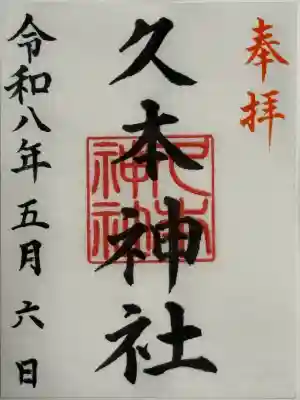 奉拝
久本神社
久本神社
令和八年五月六日